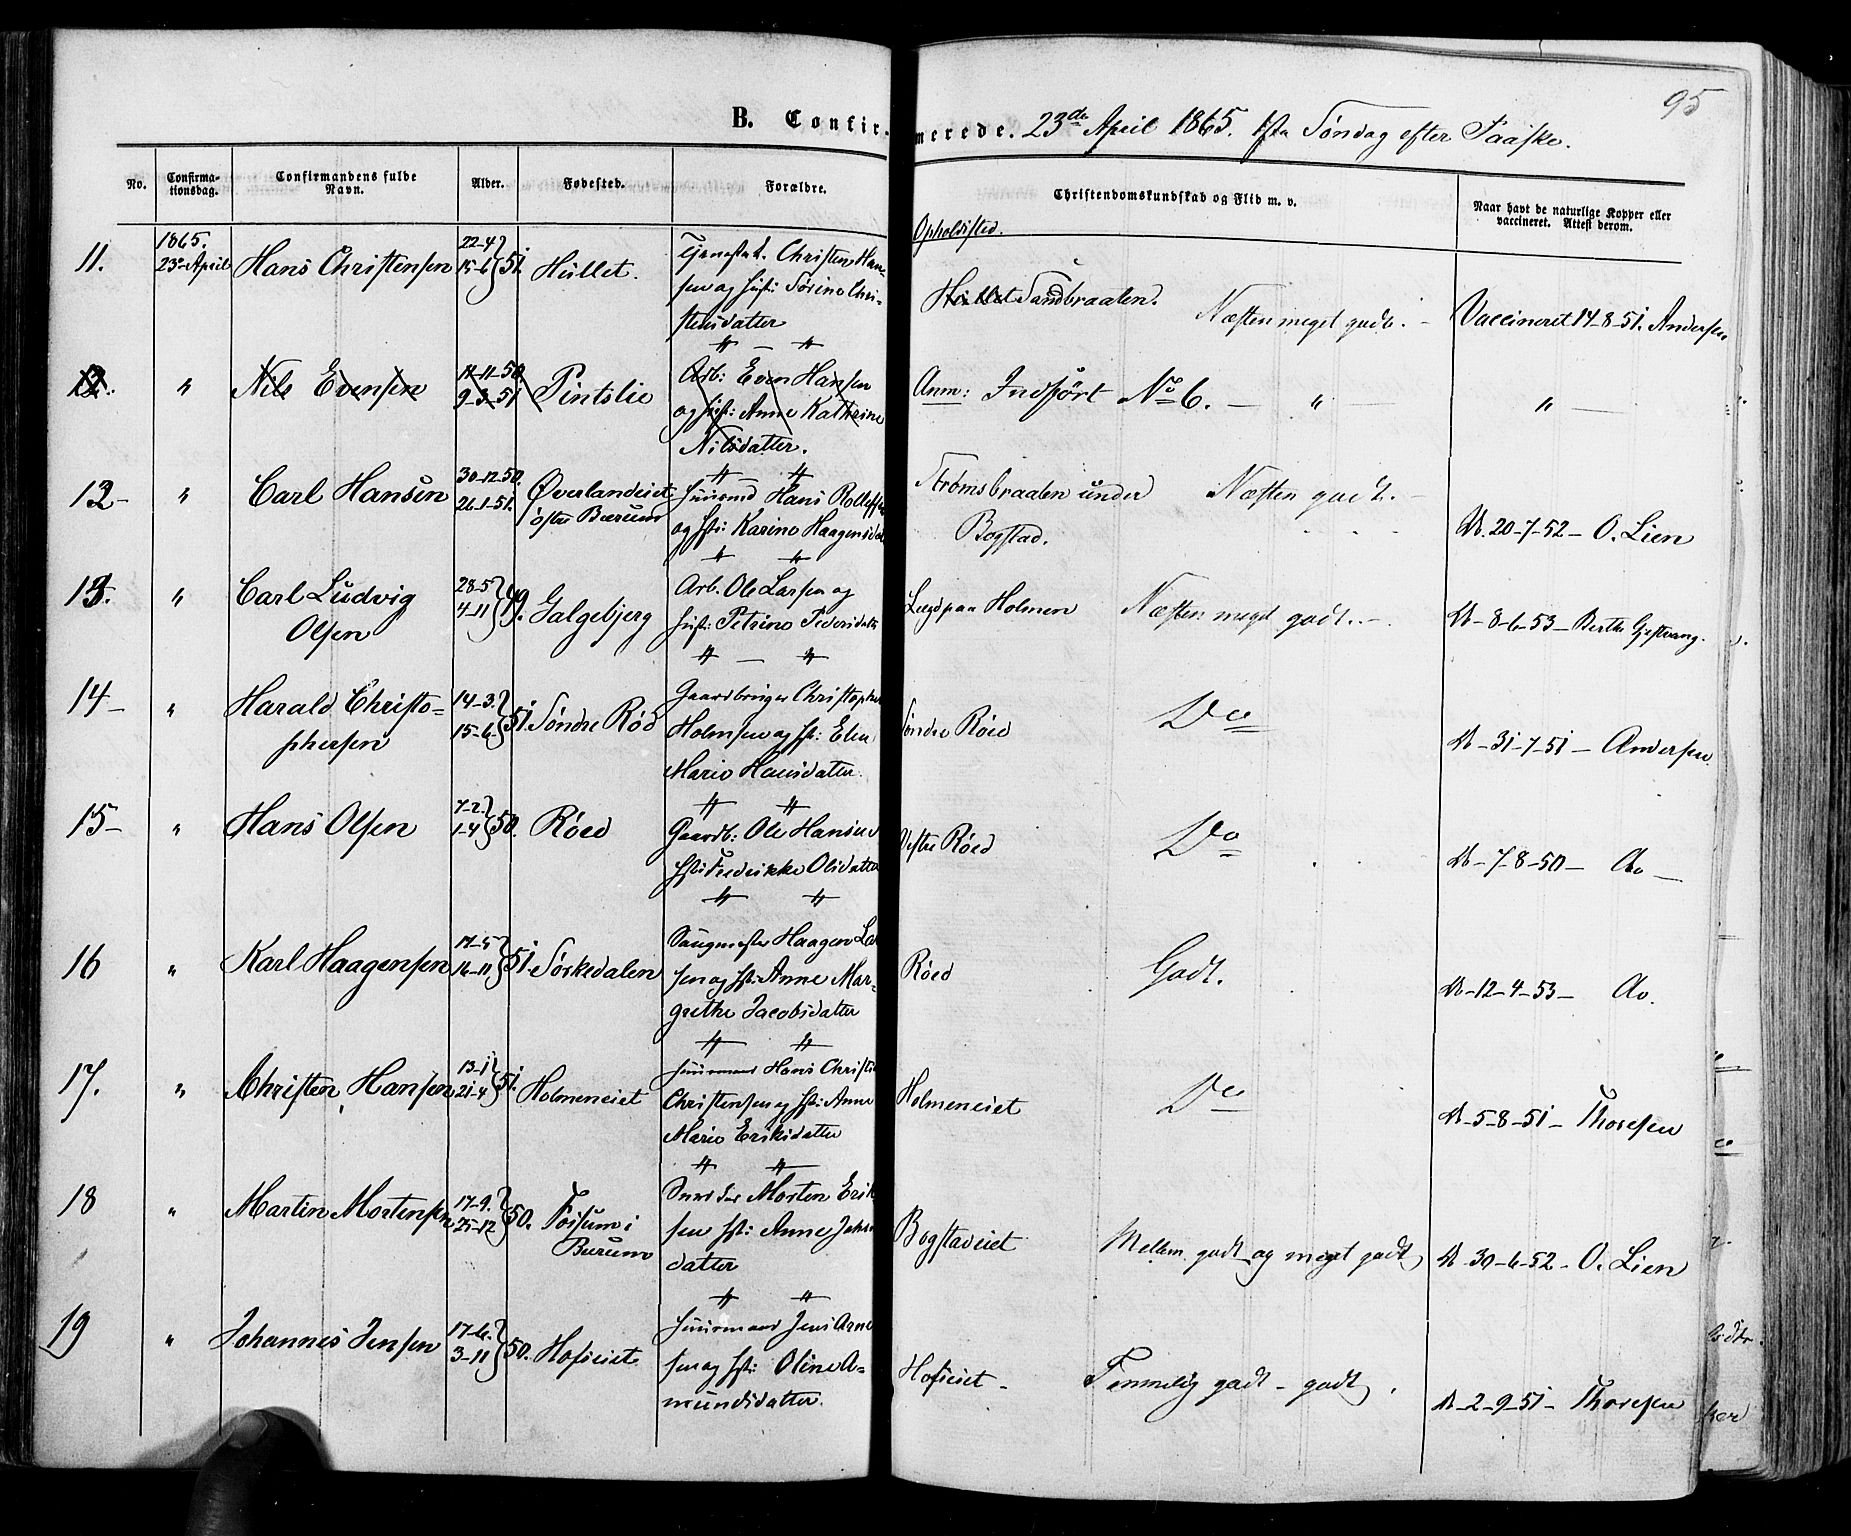 95
B. Confirmerede. 23de April 1865. 1ste Søndag efter Paaske.
No. Confirmationsdag. Confirmandens fulde Navn. Alder. Fødested. Forældre. Christendomskundskab og Flid m. v. Naar havt de naturlige Kopper eller vaccineret. Attest derom.
Opholdssted.
11. 1865. 23de April Hans Christensen 22-4 15-6 } 51. Hullet. Christen Han-
sen og Hust: Sørine Chri-
stensdatter
Hullet Sandbraaten. Næsten meget godt. – Vaccineret 14-8-51. Andersen
12. " Nils Evensen 11-11-50 9-3-51 Pintslie Arb: Even Hansen
og Hust: Anne Kathrine
Nilsdatter.
Anm: Indført No 6. – " – " –
12 – " Carl Hansen 30-12-50. 26-1-51. Øverlandeiet
østre Bærum
Huusmd Hans Rolfsen
og Hst: Karine Haagensdat
Strømsbraaten under
Bogstad.
Næsten godt. – V. 20-7-52 – O. Lien
13. " Carl Ludvig
Olsen
28-5 4-11 } 49. Galgebjerg Arb. Ole Larsen og
Hust: Petrine Pedersdatt
Lægd paa Holmen Næsten meget godt. – V – 8-6-53 – Berthe Gjestvang.
14 – " Harald Christo-
phersen
14-3. 15-6. } 51. Søndre Rød Gaardbruger Christopher
Holmsen og Hst: Elen
Marie Hansdatter.
Søndre Røed Do V – 31-7-51 – Andersen
15 – " Hans Olsen 7-2. 1-4 } 50. Røed Gaardb: Ole Hansen
Hst: Fredrikke Olsdatter
Vestre Røed Do V – 7-8-50 – Do –
16 " Karl Haagensen 17-5 16-11 } 51. Sørkedalen Saugmester Haagen La
sen og Hst: Anne Mar-
grethe Jacobsdatter
Røed Godt. V – 12-4-53 – Do.
17. " Christen Hansen 13-1 21-4 } 51. Holmeneiet Huusmand Hans Christia
Christensen og Hst: Anne
Marie Eriksdatter
Holmeneiet Do V – 5-8-51 – Thoresen
18 " Martin Mortensen 17-9. 25-12 } 50. Fossum i
Bærum
Morten Erik
sen Hst: Anne Johns
datter
Bogstadeiet Mellem godt og meget godt V – 30-6-52 – O. Lien
19 " Johannes Jensen 17-6. 3-11 } 50. Hofseiet Huusmand Jens Arne
sen og Hst: Oline A-
mundsdatter.
Hofseiet – Temmelig godt – godt. V – 2-9-51 – Thoresen